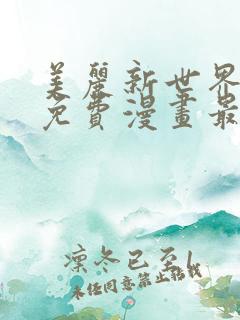 美麗新世界
免費漫畫最
凜冬已至l
未任同意禁止転載